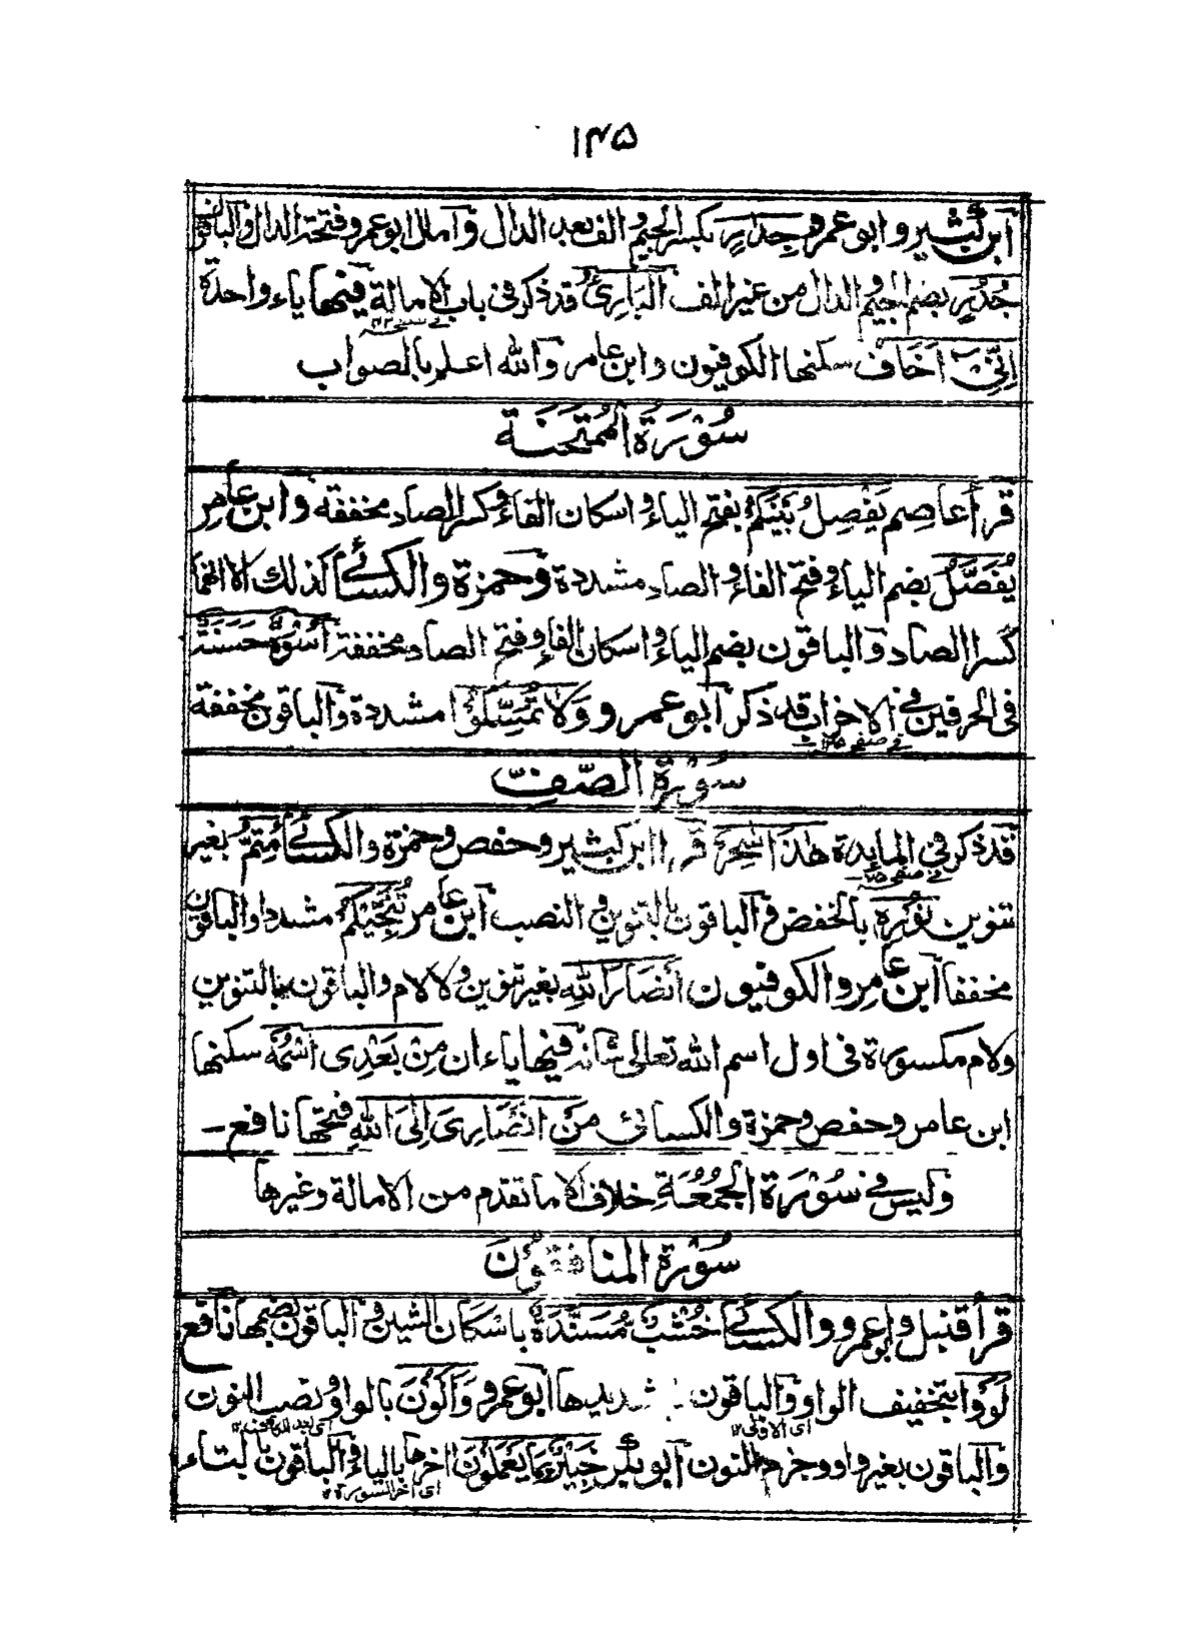 ۱۴۵
ابن كثير وابو عمرو جِدَارٍ بكسر الجيم والف بعد الدال وامال ابو عمرو فتحة الدال والباقون
جُدُرٍ بضم الجيم والدال من غير الف الْبَارِئُ قد ذكر فى باب الامالة فيها ياء واحدة
اِنِّىْ اَخَافُ سكنها الكوفيون وابن عامر والله اعلم بالصواب
سُوْرَةُ الْمُمْتَحِنَة
قرأ عاصم يَفْصِلُ بَيْنَكُمْ بفتح الياء واسكان الفاء وكسر الصاد مخففة وابن عامر
يُفَصَّلُ بضم الياء وفتح الفاء والصاد مشددة وحمزة والكسائے كذلك الا انهما
كسرا الصاد والباقون بضم الياء واسكان الفاء وفتح الصاد مخففة اُسْوَةٌ حَسَنَةٌ
فى الحرفين فے الاحزاب قد ذكر ابو عمرو وَلَا تُمَسِّكُوْا مشددة والباقون مخففة
سُوْرَةُ الصَّفِّ
قد ذكر فى المايدة هٰذَا سٰحِرٌ قرأ ابن كثير وحفص وحمزة والكسائے مُتِمُّ بغير
تنوين نُوْرِهٖ بالخفض والباقون بالتنوين والنصب ابن عامر تُنَجِّيْكُمْ مشددا والباقون
مخففا ابن عامر والكوفيون اَنْصَارَ اللهِ بغير تنوين ولا لام والباقون بالتنوين
ولام مكسورة فى اول اسم الله تعالى شانه فيها ياءان مِنْ بَعْدِى اسْمُهٗ سكنها
ابن عامر وحفص وحمزة والكسائى مَنْ اَنْصَارِىَ اِلَى اللهِ فتحها نافع ـ
وليس فے سُوْرَةِ الْجُمُعَةِ خلاف الا ما تقدم من الامالة وغيرها
سُوْرَةُ المنافقون
قرأ قنبل وابو عمرو والكسائے خُشْبٌ مُّسَنَّدَةٌ باسكان الشين والباقون بضمها نافع
لَوَوْا بتخفيف الواو والباقون بتشديدها ابو عمرو وَاَكُوْنَ بالواو ونصب النون
اى الاولى ۱۲
والباقون بغير واو وجزم النون ابو بكر خَبِيْرٌۢ بِمَا يَعْمَلُوْنَ اخرها بالياء والباقون بالتاء
اى اخر السورة ۱۲